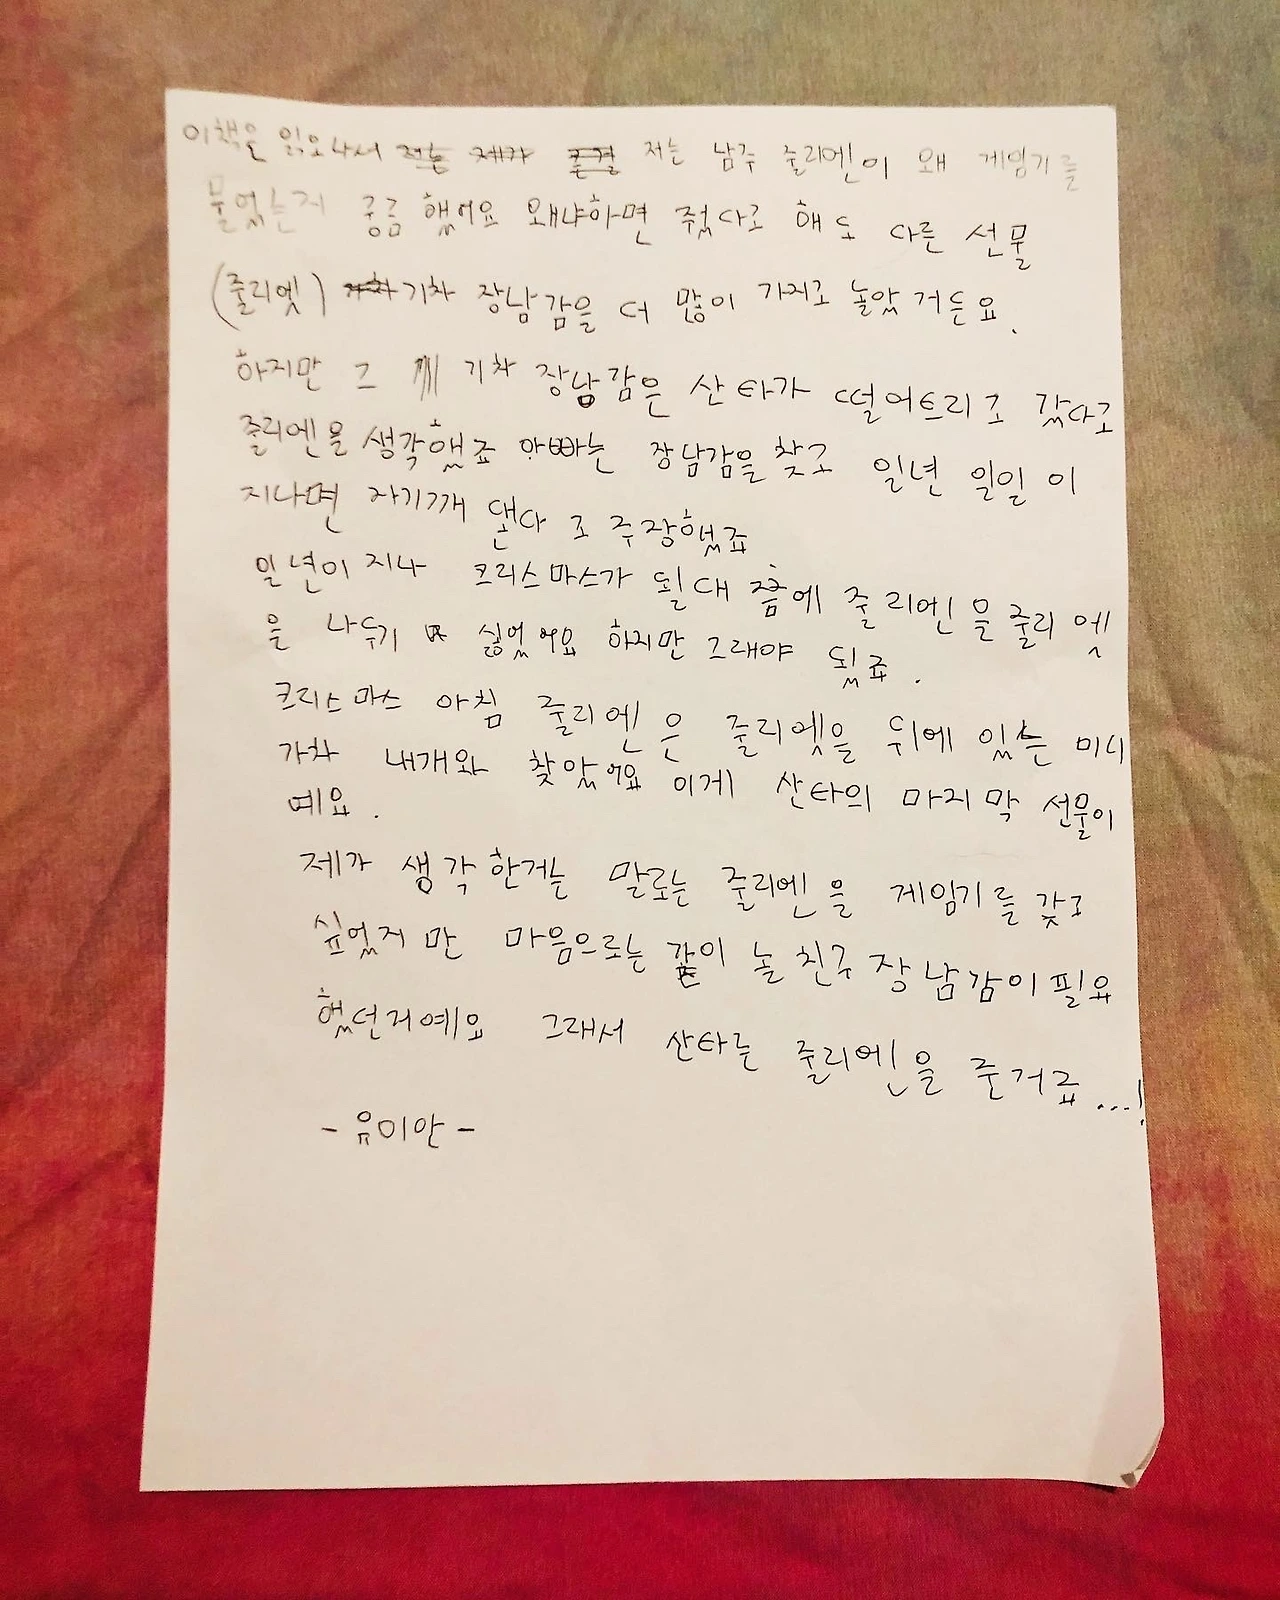 이책을 읽으나서 저는 남주 줄리엔이 왜 게임기를
물었는지 궁금했어요 왜냐하면 줬다고 해도 다른 선물
(줄리엣) 기차 장남감을 더 많이 가지고 놀았거든요.
하지만 그 기차 장남감은 산타가 떨어트리고 갔다고
줄리엔을 생각했죠 아빠는 장남감을 찾고 일년 일일 이
지나면 자기꺼 댄다고 주장했죠
일년이 지나 크리스마스가 될대 쯤에 줄리엔을 줄리엣
을 나누기 싫었어요 하지만 그래야 됬죠.
크리스마스 아침 줄리엔은 줄리엣을 뒤에 있는 미니
가차 내개와 찾았어요 이게 산타의 마지막 선물이
예요.
제가 생각한거는 말로는 줄리엔을 게임기를 갖고
싶었지만 마음으로는 같이 놀 친구 장남감이 필요
했던거예요 그래서 산타는 줄리엔을 준거죠...!
-유미안-